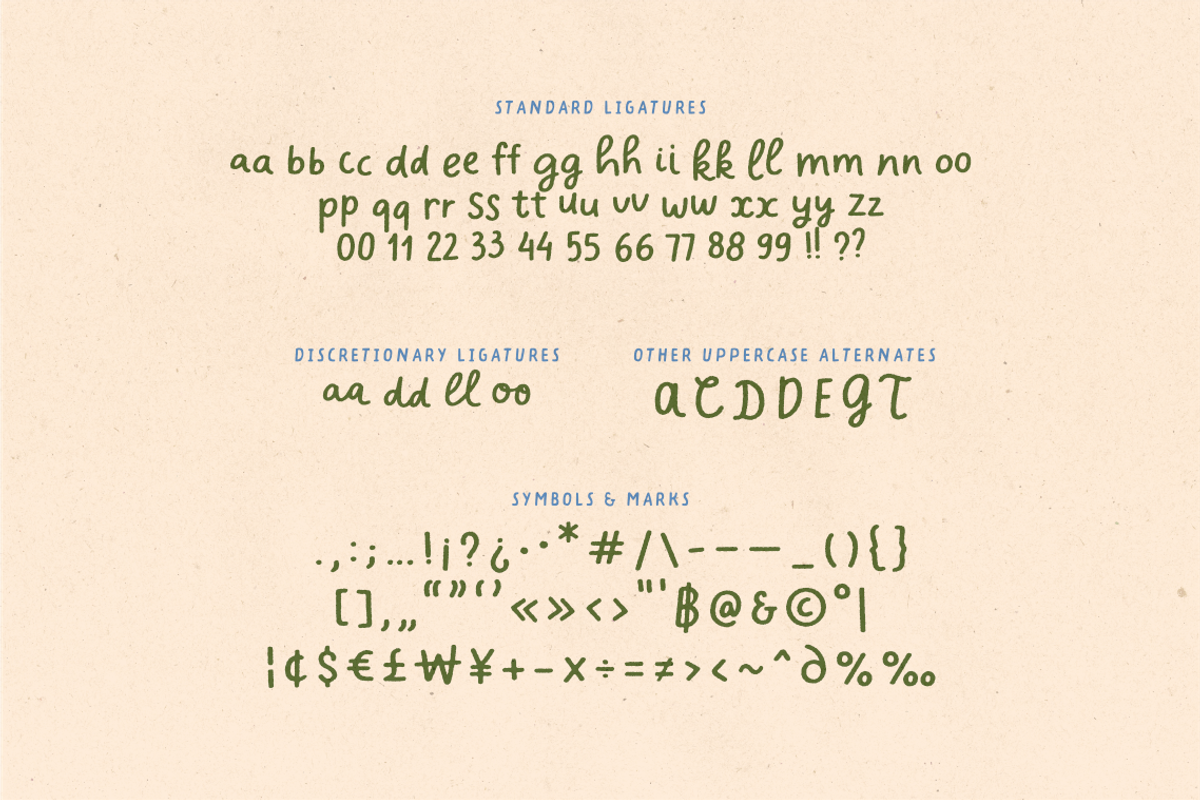 STANDARD LIGATURES
aa bb cc dd ee ff gg hh ii kk ll mm nn oo
pp qq rr ss tt uu vv ww xx yy zz
00 11 22 33 44 55 66 77 88 99 !! ??
DISCRETIONARY LIGATURES
aa dd ll oo
OTHER UPPERCASE ALTERNATES
a C D D E G T
SYMBOLS & MARKS
. , : ; … ! ¡ ? ¿ · • * # / \ - – — _ ( ) { }
[ ] ‚ „ “ ” ‘ ’ « » ‹ › " ' ฿ @ & © ° |
¦ ¢ $ € £ ₩ ¥ + − × ÷ = ≠ > < ~ ^ ∂ % ‰